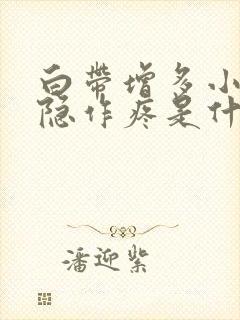 白带增多小
隐作疼是什
潘迎紫